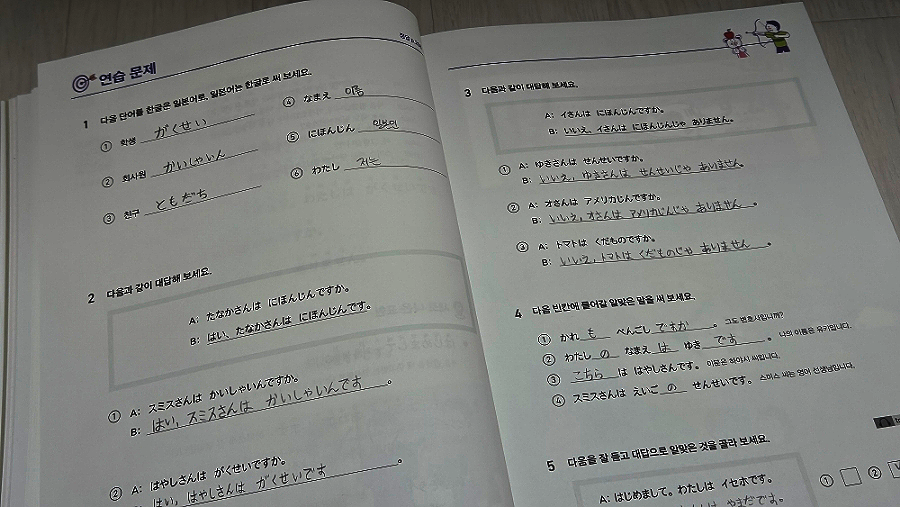 연습 문제
1 다음 단어를 한글은 일본어로, 일본어는 한글로 써 보세요.
① 학생 がくせい
② 회사원 かいしゃいん
③ 친구 ともだち
④ なまえ 이름
⑤ にほんじん 일본인
⑥ わたし 저는
2 다음과 같이 대답해 보세요.
A: たなかさんは にほんじんですか。
B: はい、たなかさんは にほんじんです。
① A: スミスさんは かいしゃいんですか。
B: はい, スミスさんは かいしゃいんです。
② A: はやしさんは がくせいですか。
B: はい, はやしさんは がくせいです。
3 다음과 같이 대답해 보세요.
A: イさんは にほんじんですか。
B: いいえ、イさんは にほんじんじゃ ありません。
① A: ゆきさんは せんせいですか。
B: いいえ, ゆきさんは, せんせいじゃ ありません。
② A: オさんは アメリカじんですか。
B: いいえ, オさんは アメリカじんじゃ ありません。
③ A: トマトは くだものですか。
B: いいえ, トマトは くだものじゃ ありません。
4 다음 빈칸에 들어갈 알맞은 말을 써 보세요.
① かれ も べんごし ですか。 그도 변호사입니까?
② わたし の なまえ は ゆき です。 나의 이름은 유키입니다.
③ こちら は はやしさんです。 이분은 하야시 씨입니다.
④ スミスさんは えいご の せんせいです。 스미스 씨는 영어 선생님입니다.
5 다음을 잘 듣고 대답으로 알맞은 것을 골라 보세요.
A: はじめまして。わたしは イセホです。
やまだです。
① ②